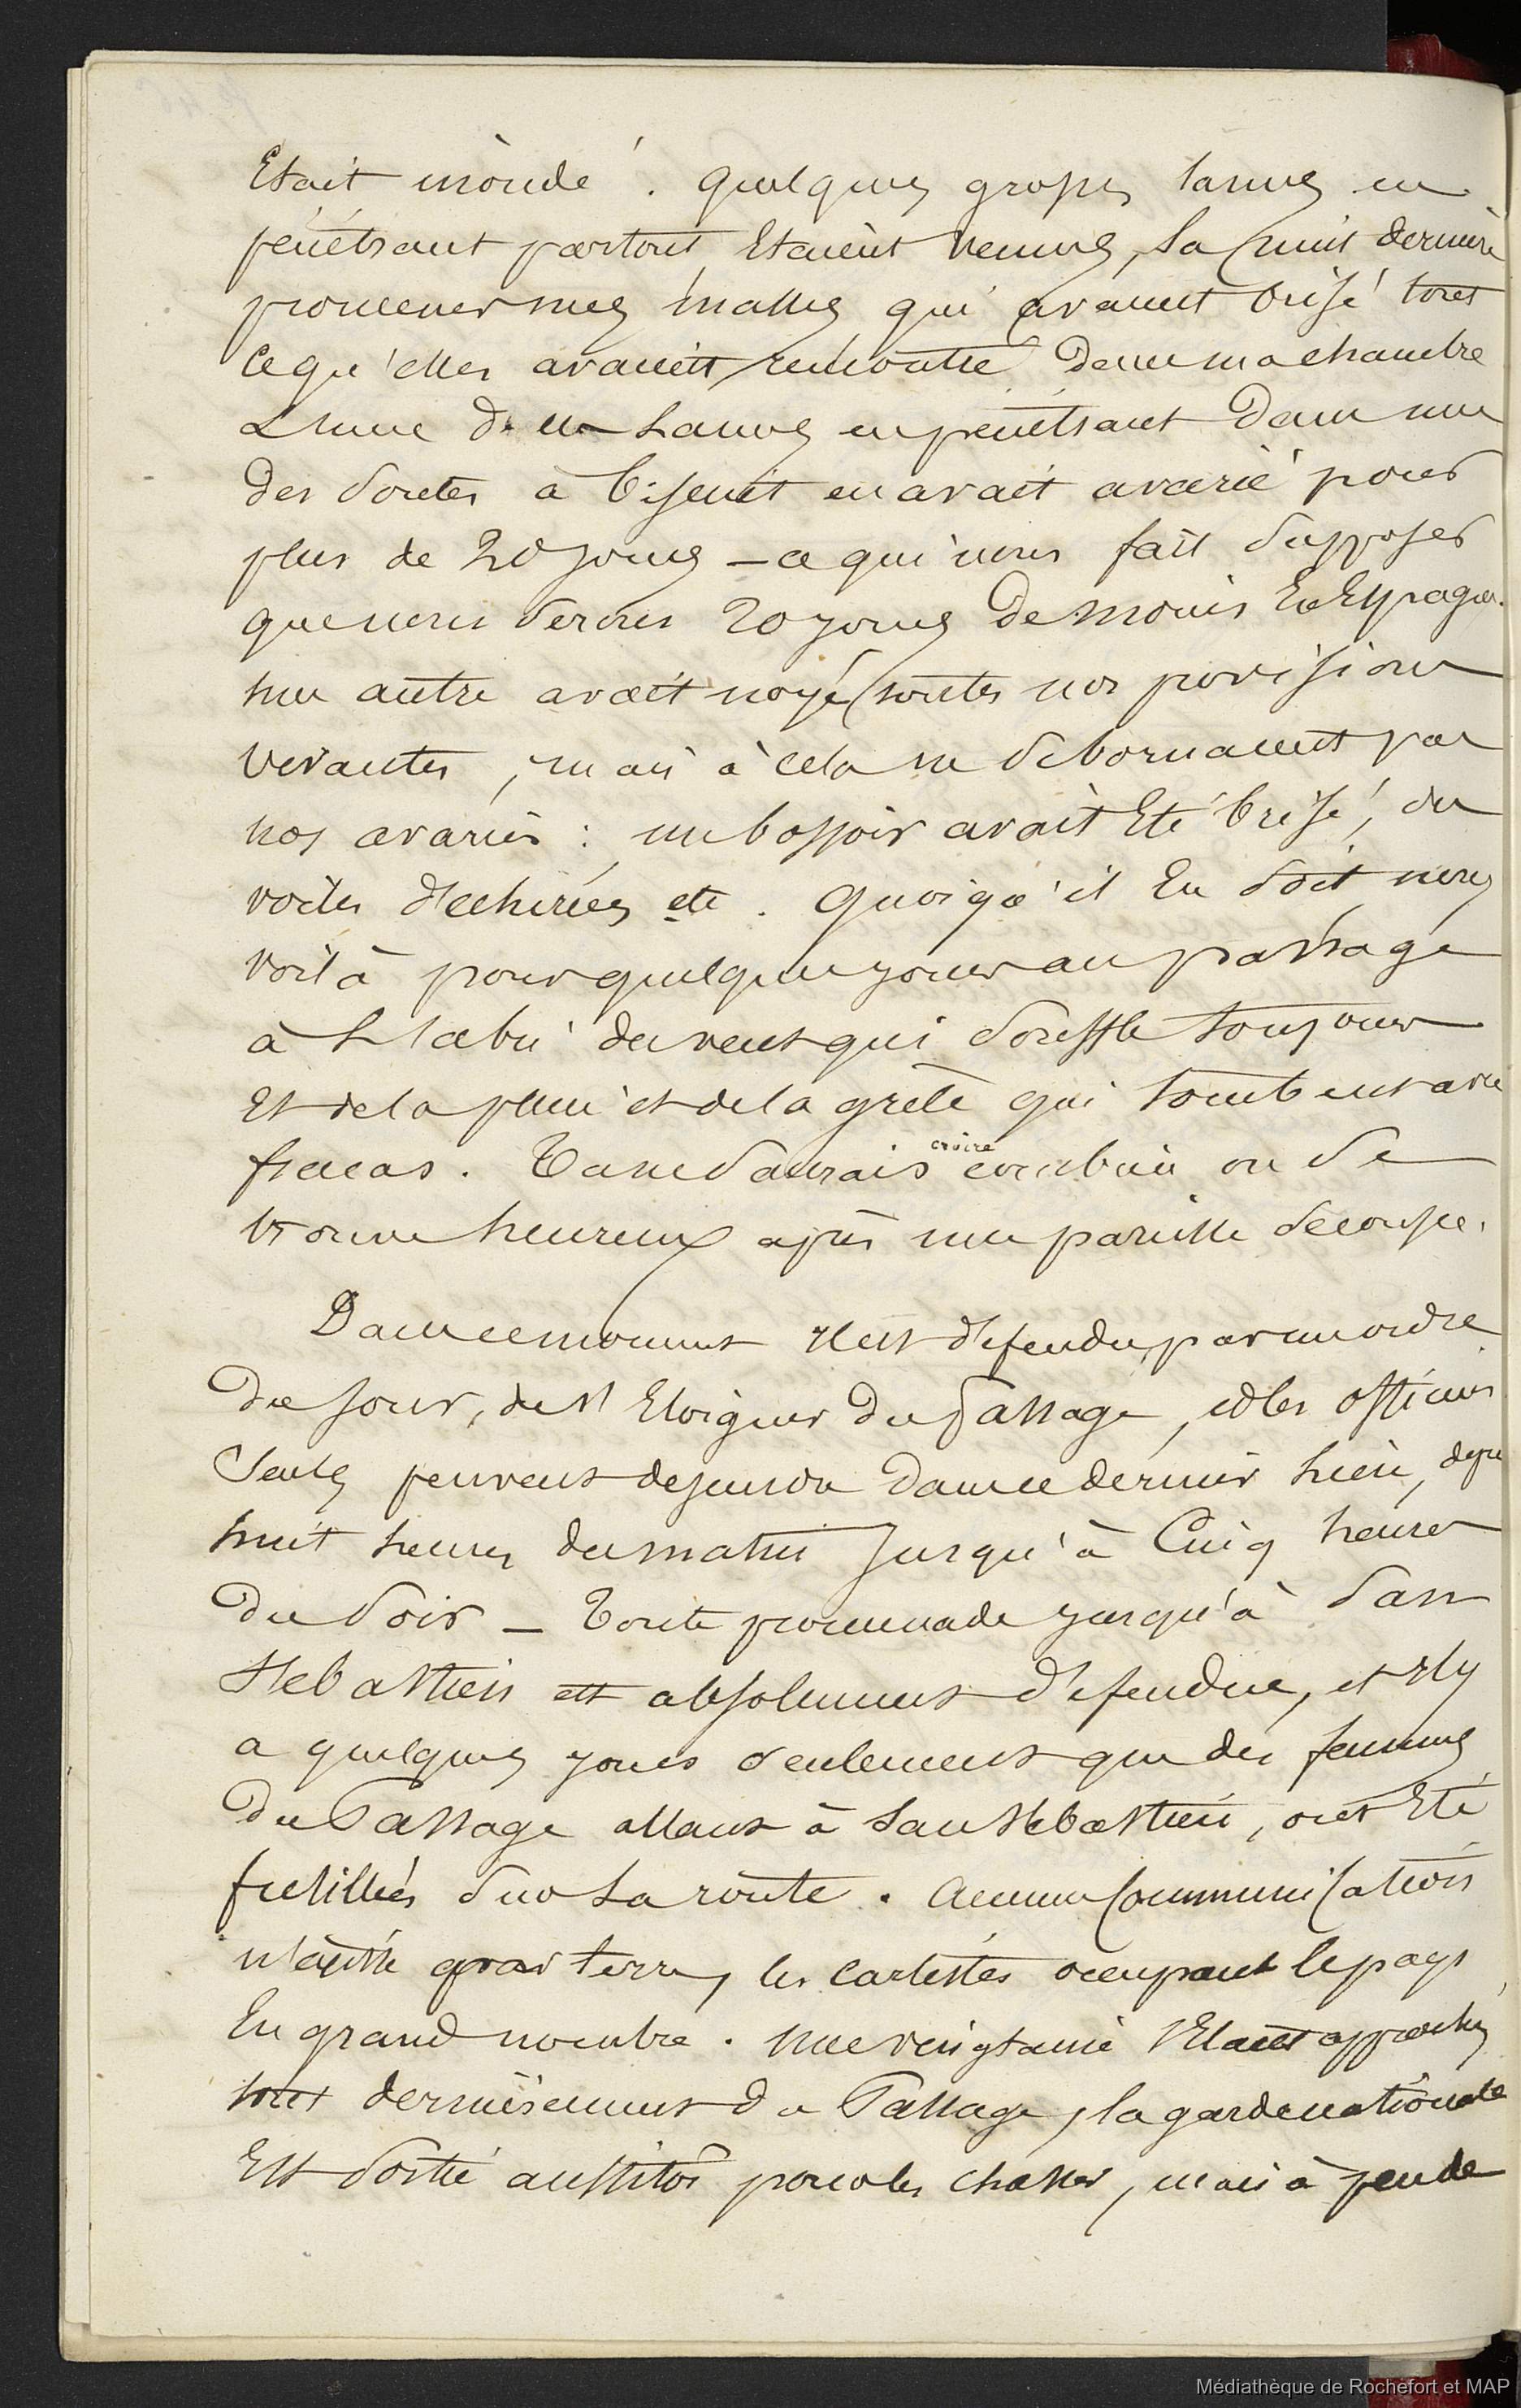 Etait inondé. quelques grosses lames en
pénétrant partout Etaient venues, la nuit dernière
promener mes malles qui avaient brisé tout
ce qu'elles avaient rencontré dans ma chambre
L'une de ces lames en pénétrant dans une
des soutes à biscuit en avait avarié pour
plus de 20 jours – ce qui nous fait supposer
que nous serons 20 jours de moins En Espagne.
une autre avait noyé toutes nos provisions
vivantes, mais à cela ne se bornaient pas
nos avaries : un bossoir avait Eté brisé, des
voiles déchirées etc. Quoiqu'il En soit nous
voilà pour quelques jours au passage
à l'abri du vent qui souffle toujours
Et de la pluie et de la grèle qui tombent avec
fracas. Tu ne saurais croire combien on se
trouve heureux après une pareille secousse.
Dans ce moment Il est défendu, par un ordre
du jour, de s'Eloigner du Passage, et les officiers
seuls peuvent descendre dans ce dernier lieu, depuis
huit heures du matin jusqu'à Cinq heures
du soir – Toute promenade jusqu'à San
Sebastien est absolument défendue, et Il y
a quelques jours seulement que des femmes
du Passage allant à San Sebastien, ont Eté
fusillées sur la route. Aucune communication
n'existe par terre, les carlistes occupant le pays
En grand nombre. une vingtaine s'Etant approchés
tout dernièrement du Passage, la garde nationale
Est sortie aussitôt pour les chasser, mais à peu de
Médiathèque de Rochefort et MAP